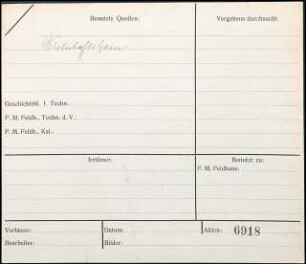 Benutzte Quellen:
Vergebens durchsucht:
Geschichtsbl. f. Techn.
F. M. Feldh., Techn. d. V.:
F. M. Feldh., Kal.:
Irrtümer:
Benutzt zu:
F. M. Feldhaus,
Verfasser:
Bearbeiter:
Datum:
Bilder:
Akten: 6918